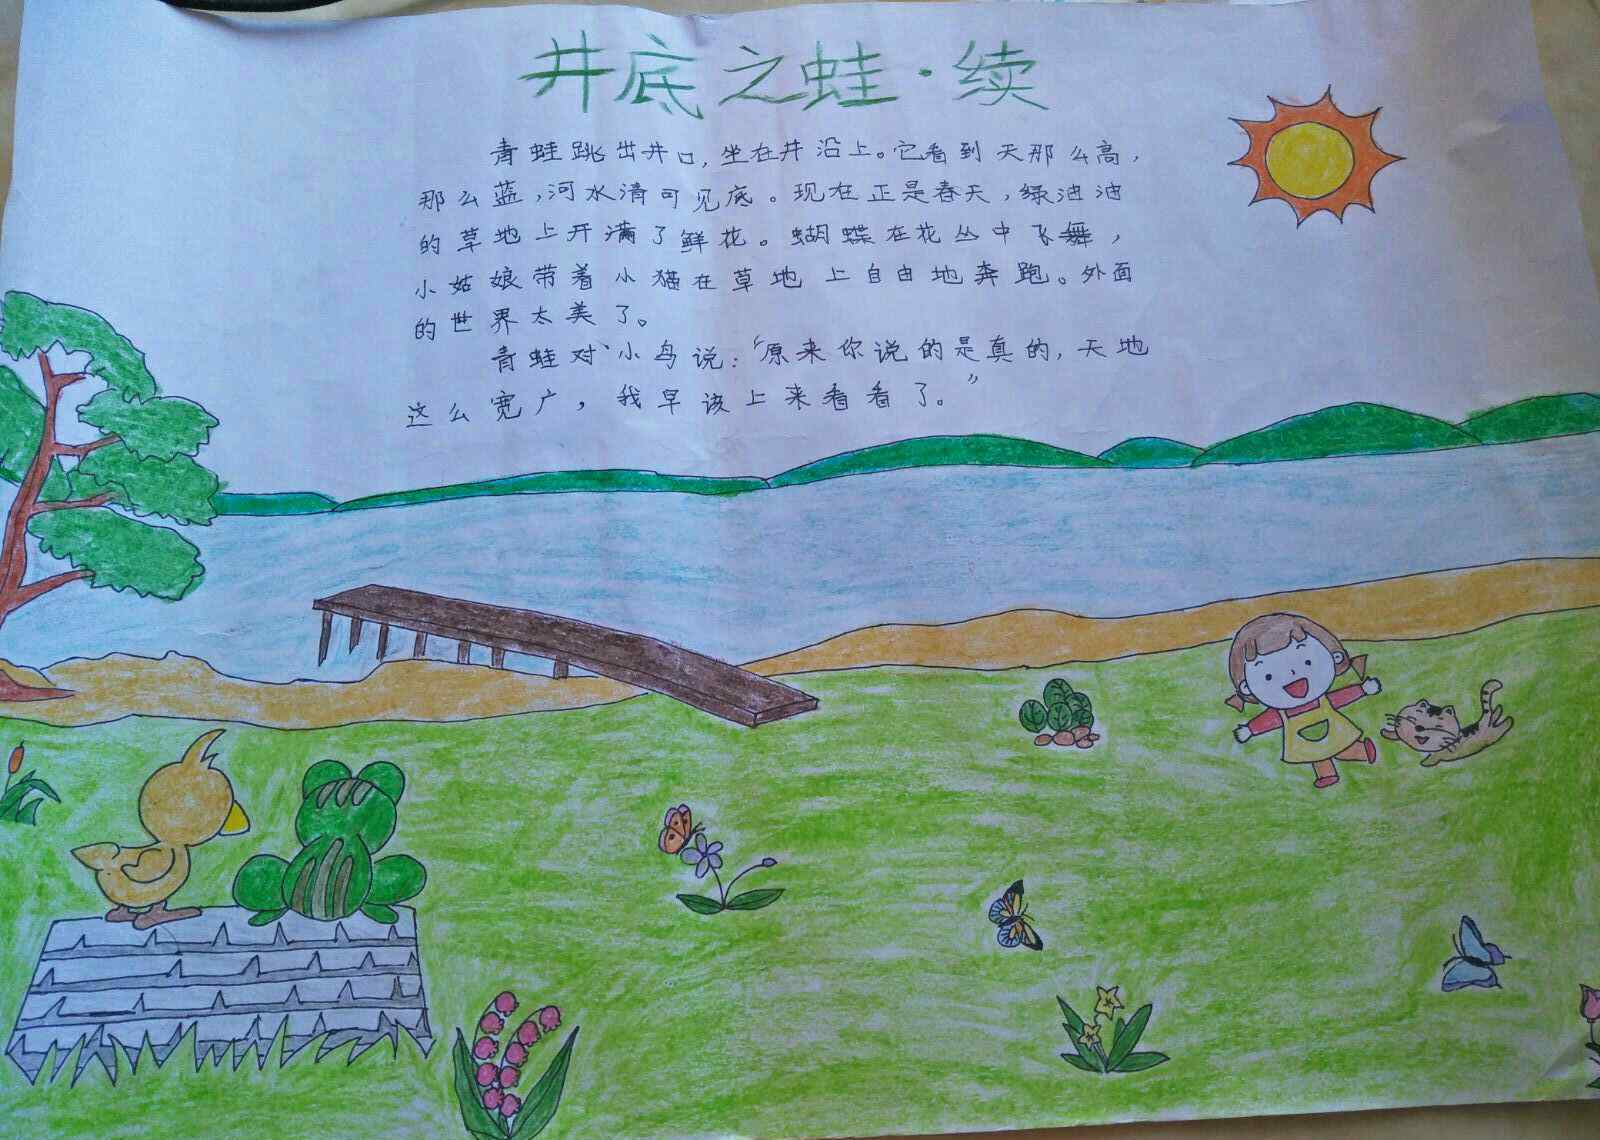 井底之蛙·续
青蛙跳出井口,坐在井沿上。它看到天那么高,
那么蓝,河水清可见底。现在正是春天,绿油油
的草地上开满了鲜花。蝴蝶在花丛中飞舞,
小姑娘带着小猫在草地上自由地奔跑。外面
的世界太美了。
青蛙对小鸟说:“原来你说的是真的,天地
这么宽广,我早该上来看看了。”